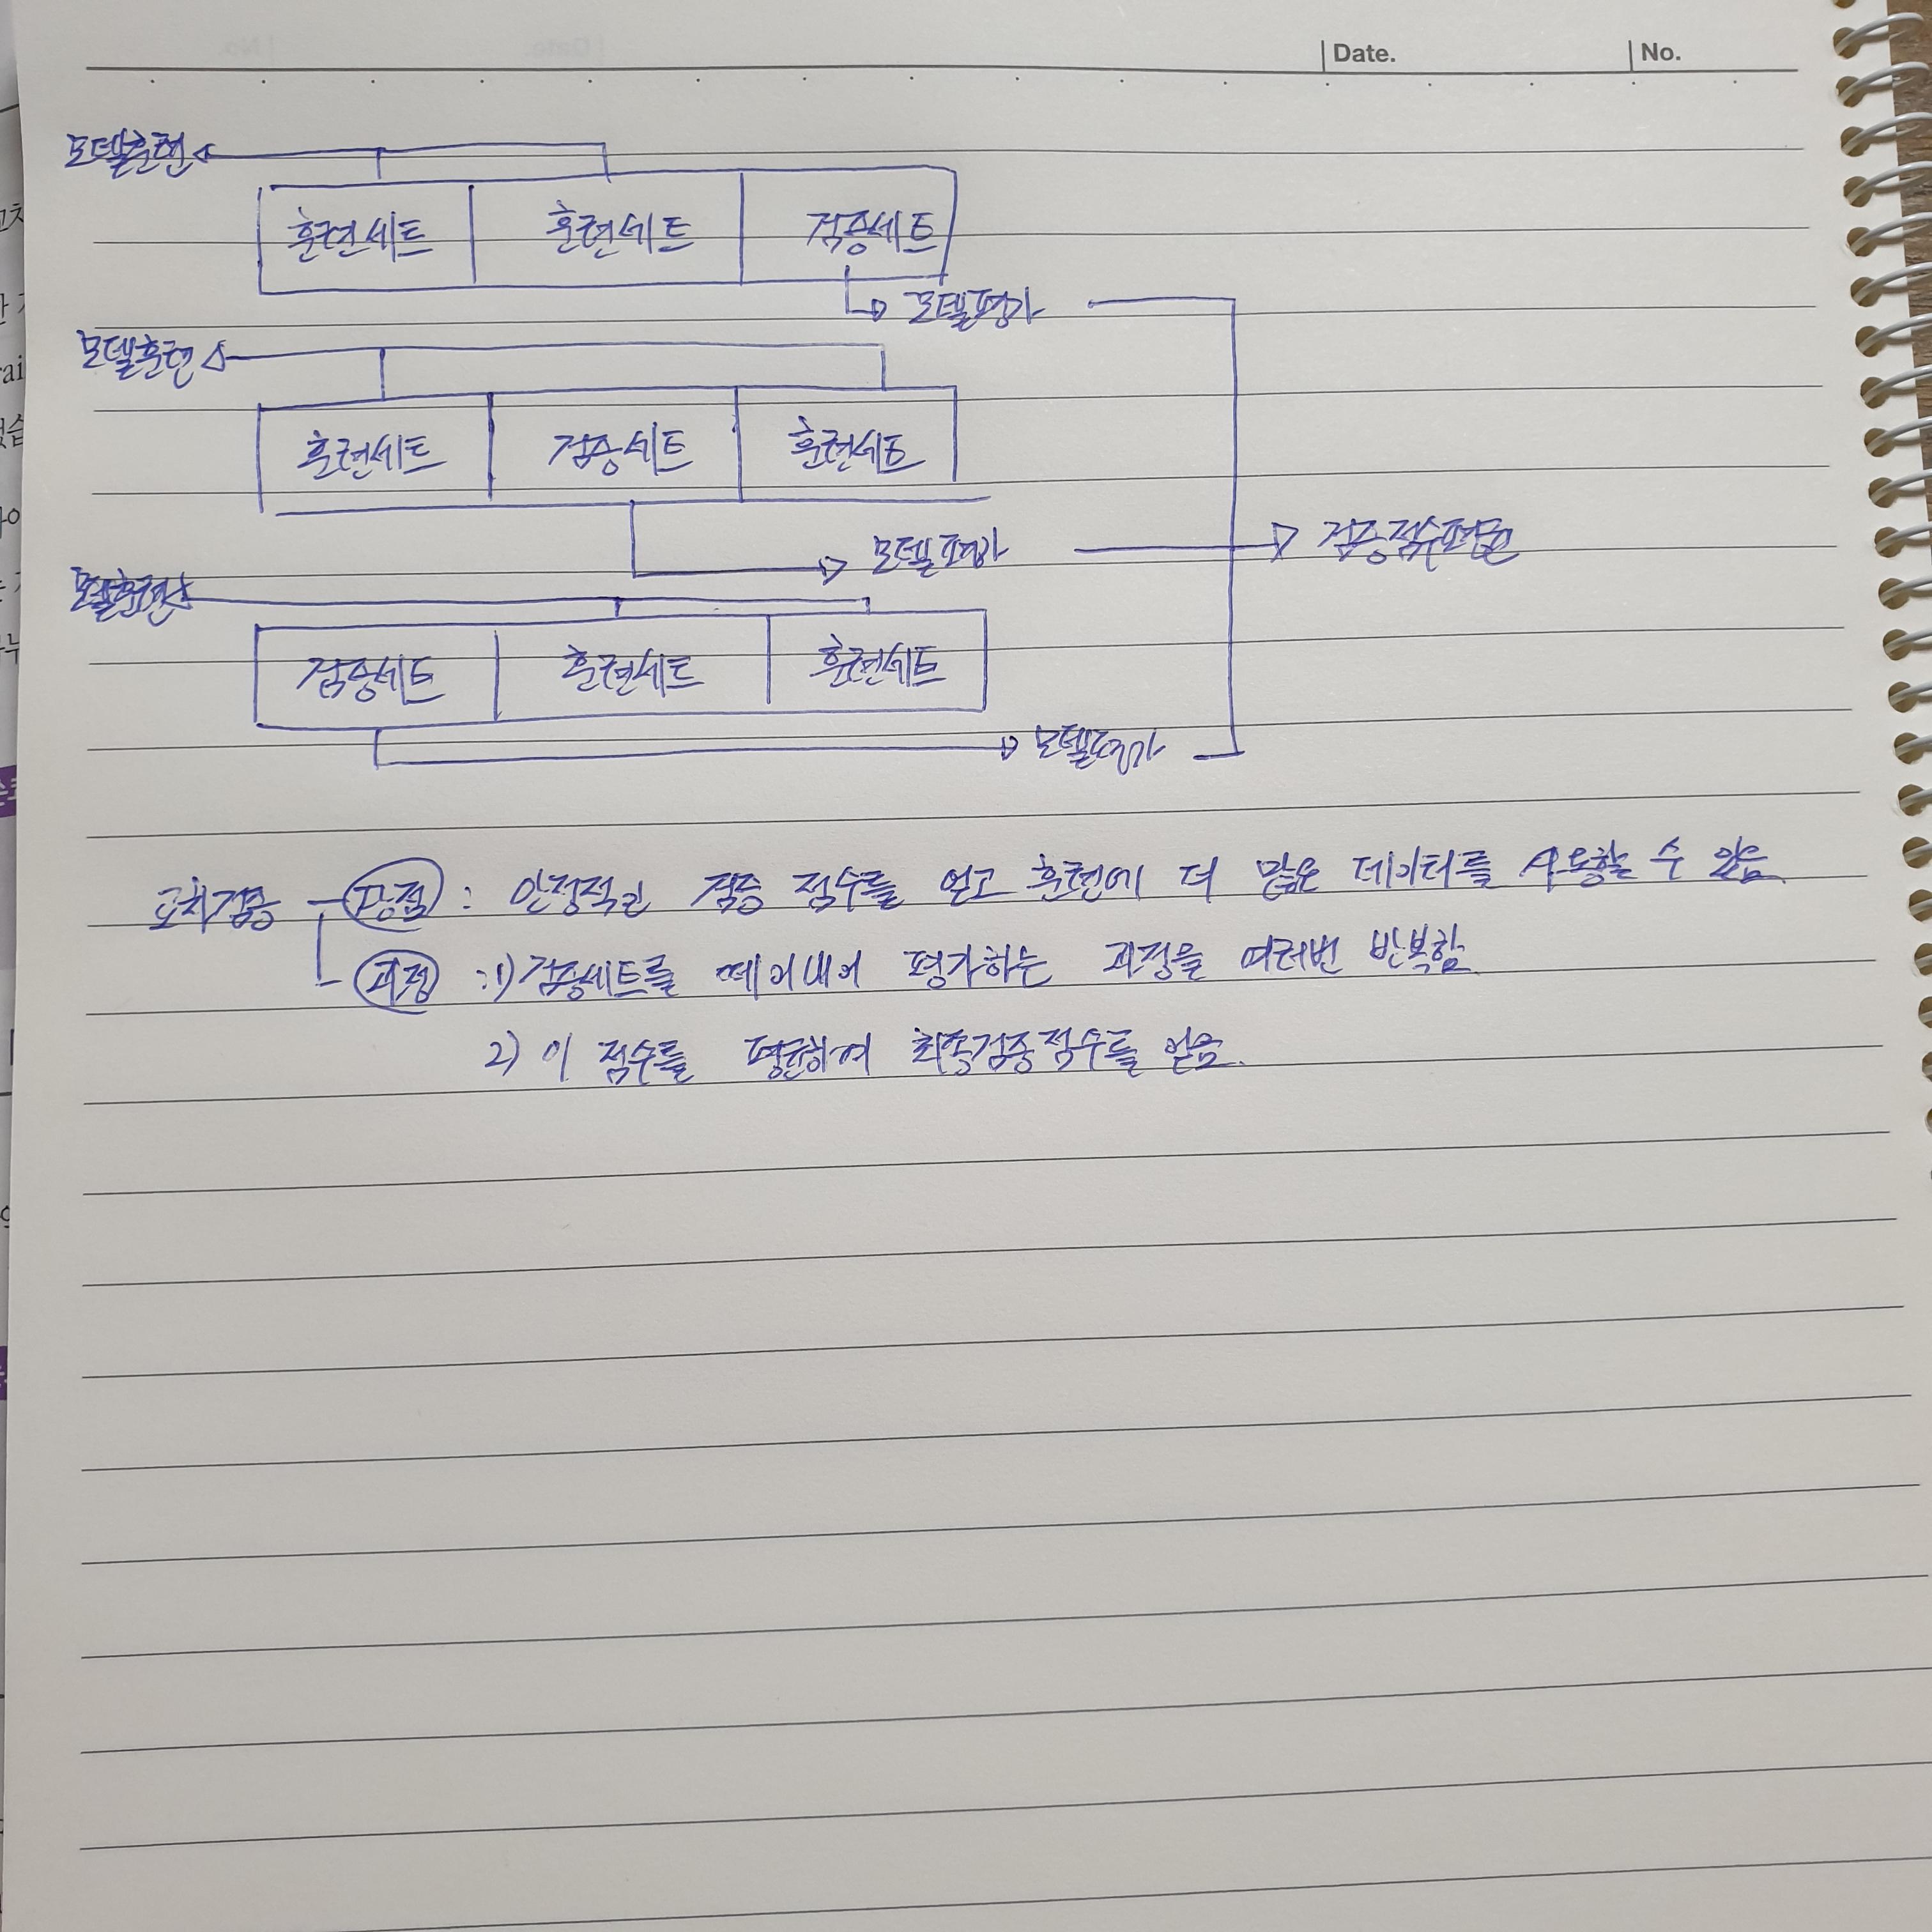 Date. No.
모델훈련
훈련세트 훈련세트 검증세트
모델평가
모델훈련
훈련세트 검증세트 훈련세트
모델평가 검증점수평균
모델훈련
검증세트 훈련세트 훈련세트
모델평가
교차검증 장점 : 안정적인 검증 점수를 얻고 훈련에 더 많은 데이터를 사용할 수 있음
과정 :1) 검증세트를 떼어내어 평가하는 과정을 여러번 반복함
2) 이 점수를 평균하여 최종검증점수를 얻음.